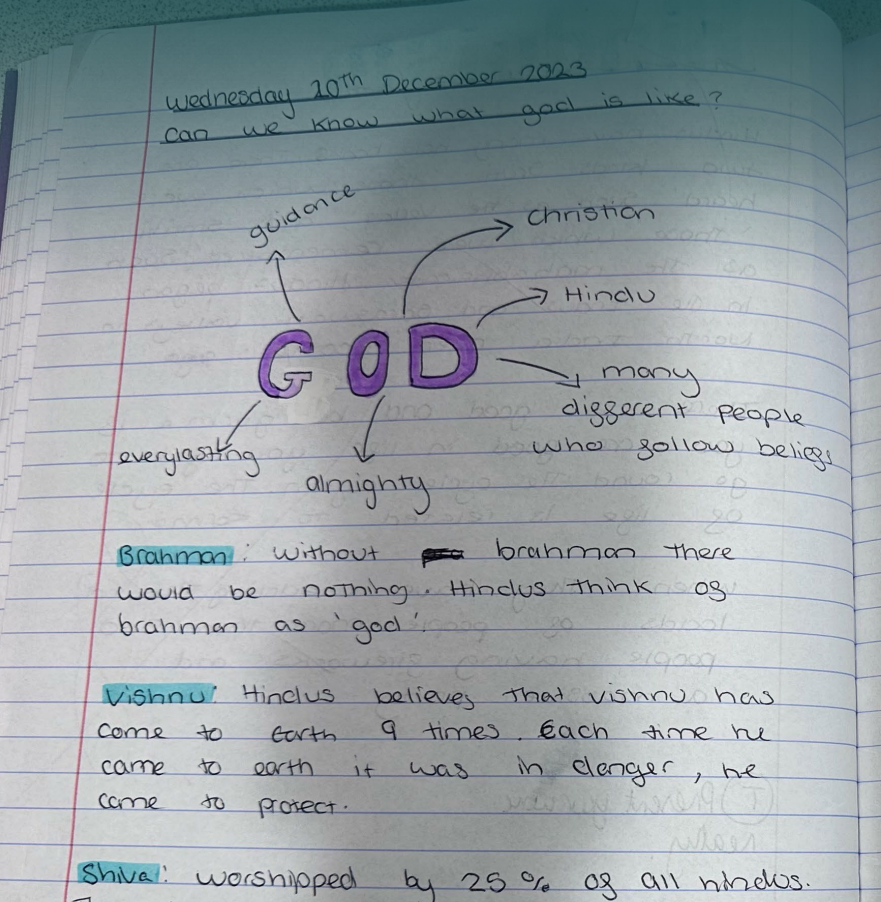 Wednesday 20th December 2023
Can we know what god is like?
guidance
Christian
Hindu
GOD
many
different people
who follow beliefs
everylasting
almighty
Brahman: without brahman there
would be nothing. Hindus think of
brahman as 'god'.
Vishnu: Hindus believes that vishnu has
come to Earth 9 times. Each time he
came to earth it was in danger, he
came to protect.
Shiva: worshipped by 25% of all hindus.